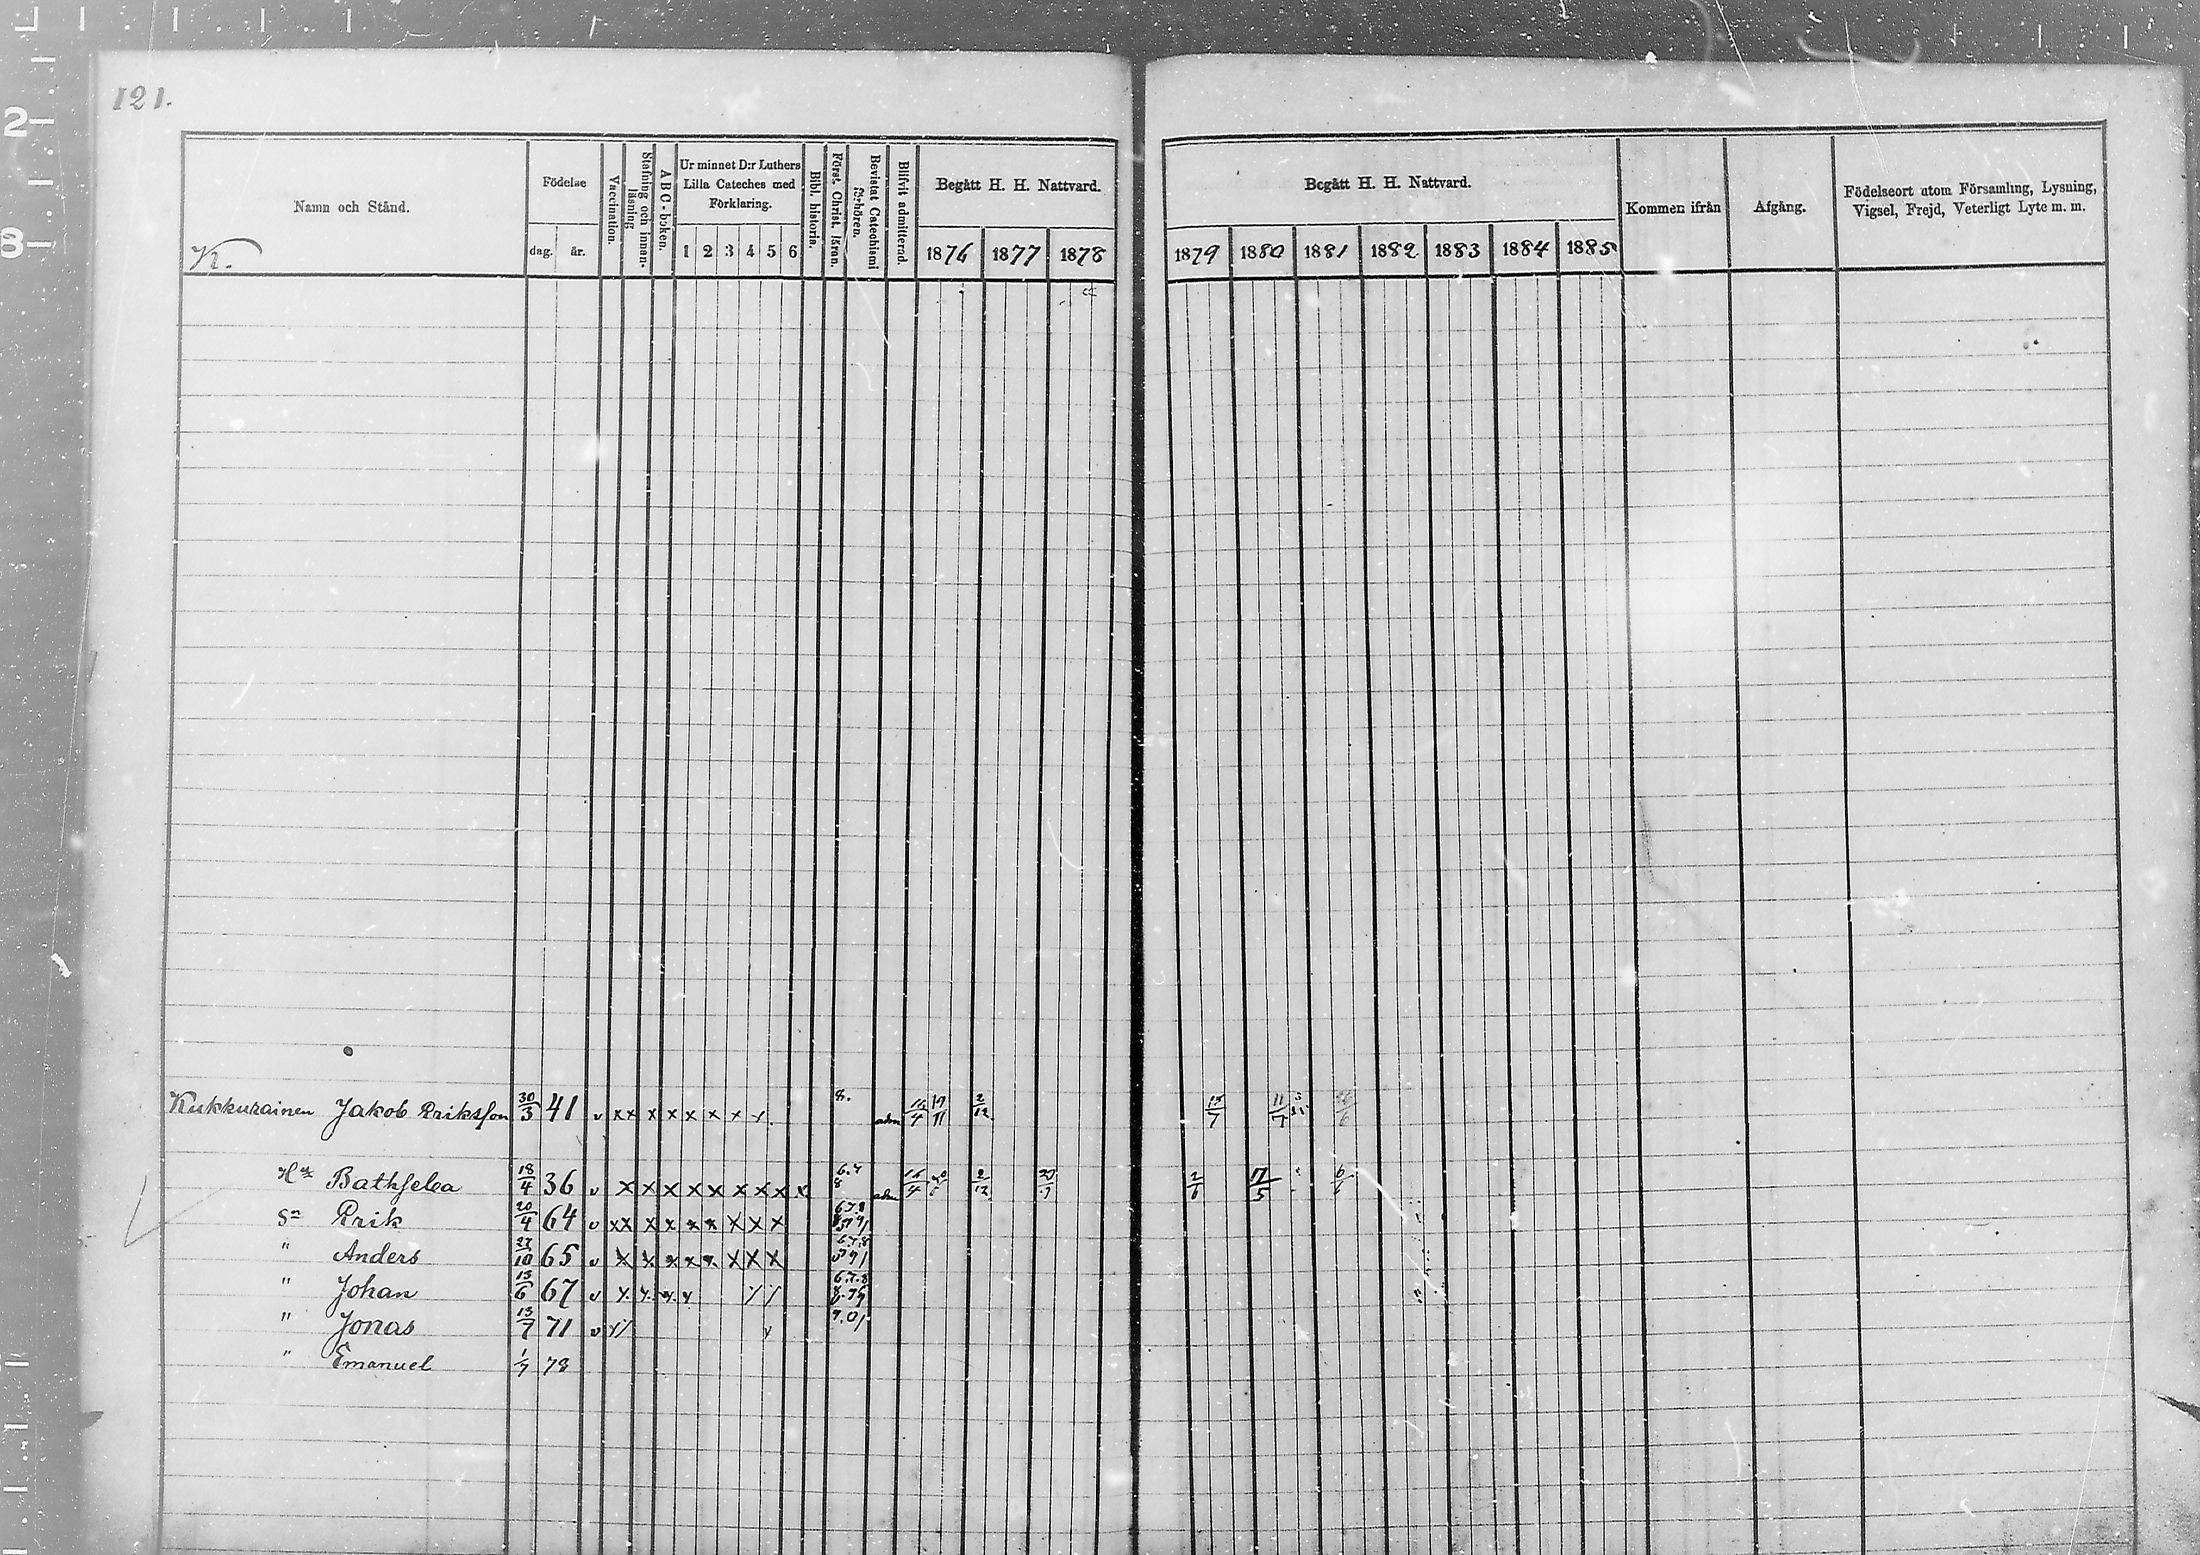 121.
Namn och Stånd.
K.
Födelse
dag. år.
Vaccination.
Stafning och innan-läsning
A B C-boken.
Ur minnet D:r Luthers
Lilla Cateches med
Förklaring.
1 2 3 4 5 6
Bibl. historia.
Först. Christ. läran.
Bevistat Catechismi förhören.
Blifvit admitterad.
Begått H. H. Nattvard.
1876 1877 1878
Begått H. H. Nattvard.
1879 1880 1881 1882 1883 1884 1885
Kommen ifrån
Afgång.
Födelseort utom Församling, Lysning,
Vigsel, Frejd, Veterligt Lyte m. m.
Kukkurainen Jakob Eriksson 30/3 41 v x x x x x x x x 8. adm 2/12 15/7 11/7
Hu Bathseba 18/4 36 v x x x x x x x x x 6.7 8 adm 2/12 2/6 17/5 6/6
Sn Erik 20/4 64 v x x x x x x x x x 6.7.8
" Anders 27/10 65 v x x x x x x x x 6.7.8
" Johan 15/6 67 v x x x x 6.7.8
" Jonas 13/7 71 v
" Emanuel 1/7 78